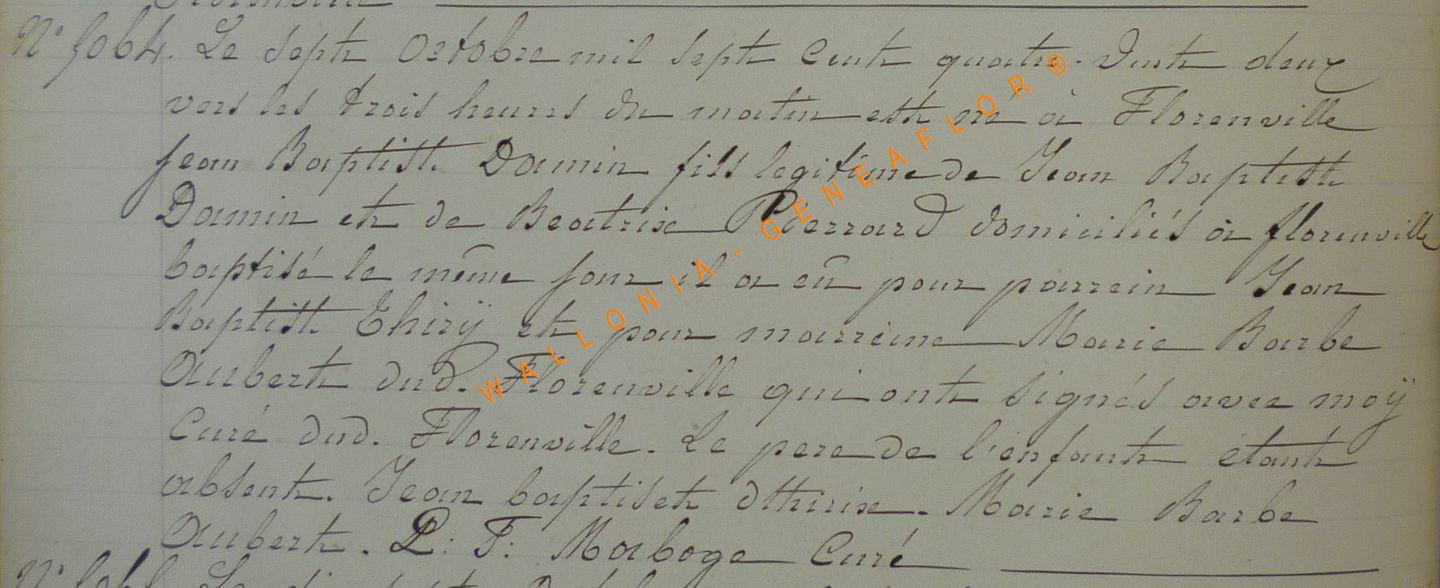 N° 5064. Le sept Octobre mil sept Cent quatre-Vint deux
vers les trois heures du matin est né à Florenville
Jean Baptiste Damin fils legitime de Jean Baptiste
Damin et de Beatrix Pierrard domiciliés à florenville
baptisé le même jour il a eû pour parrein Jean
Baptiste Thirÿ et pour marreine Marie Barbe
Aubert dud. Florenville qui ont signés avec moÿ
Curé dud. Florenville. Le pere de l'enfant étant
absent. Jean baptiset dthirix. Marie Barbe
Aubert. P: F: Maboge Curé
WALLONIA - GENEAFLOR ®